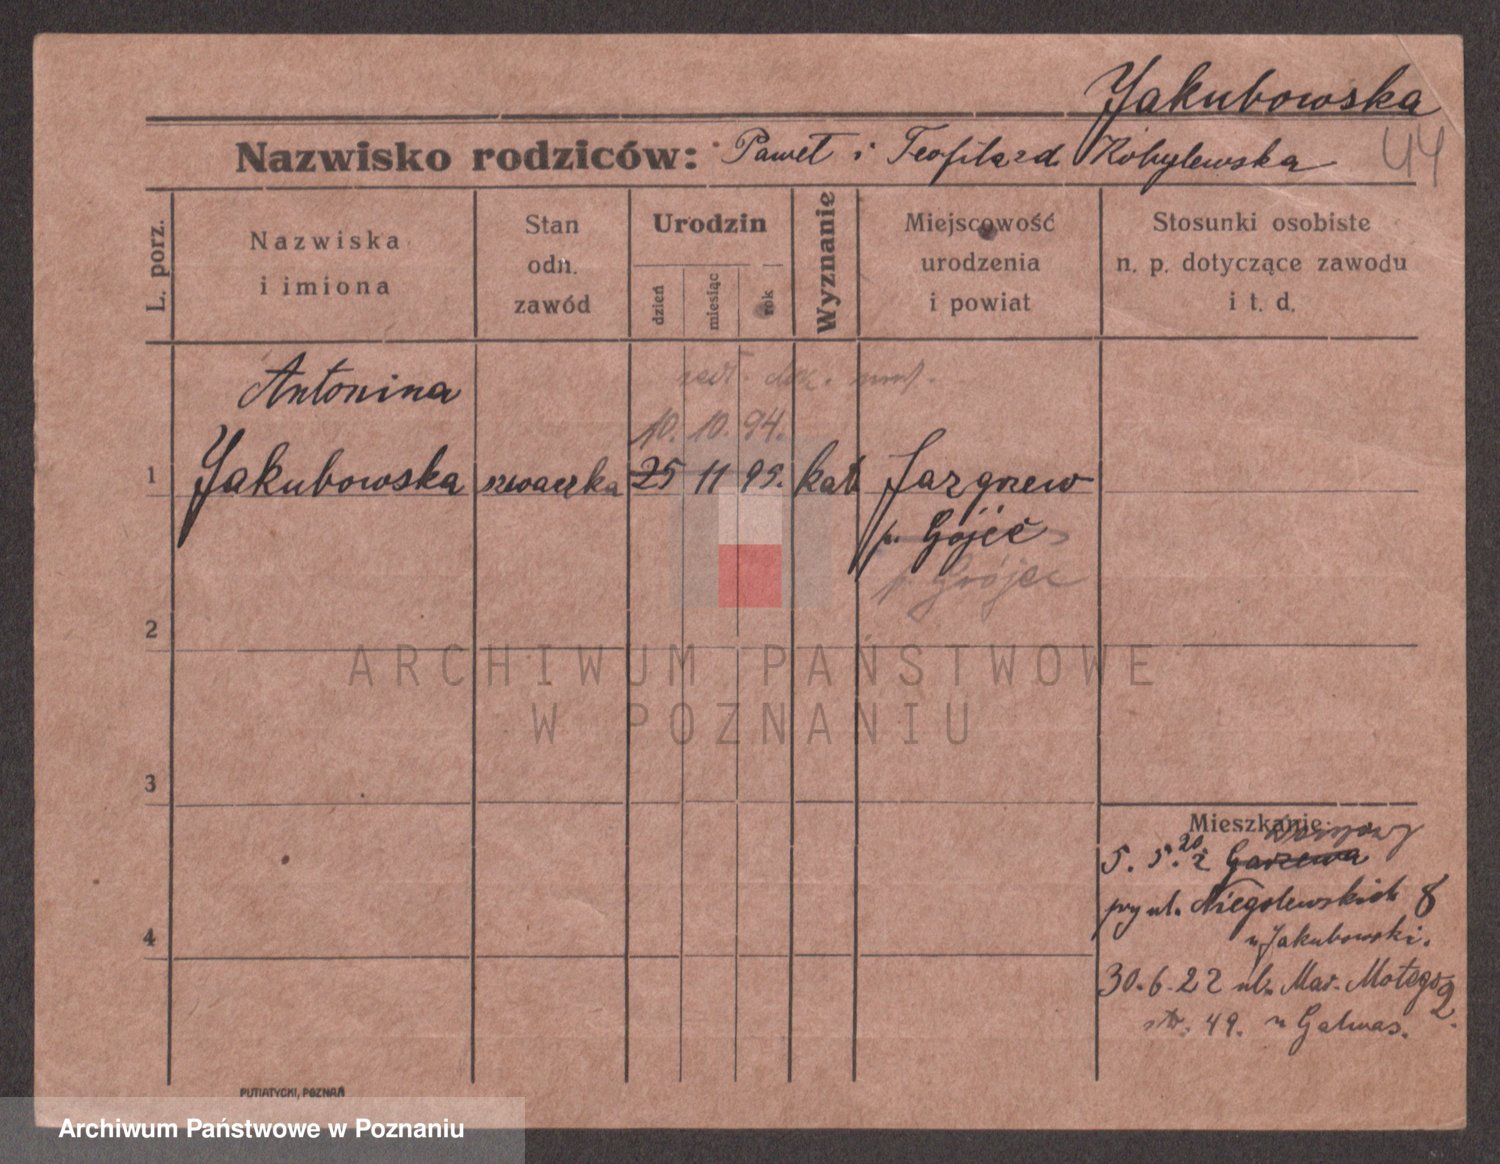 Jakubowska
44
Nazwisko rodziców: Paweł i Teofila zd Kobylewska
L. porz.
Nazwiska
i imiona
Stan
odn.
zawód
Urodzin
dzień
miesiąc
rok
Wyznanie
Miejscowość
urodzenia
i powiat
Stosunki osobiste
n. p. dotyczące zawodu
i t. d.
Antonina
10. 10. 94.
1 Jakubowska szwaczka 25 11 95. kat Jazgrzew
p. Gójec
p. Grójec
2
ARCHIWUM PAŃSTWOWE
W POZNANIU
3
Mieszkanie:
5. 5. 20 z
przy ul. Niegolewskich 8
u Jakubowski.
30.6.22 ul. Mar. Motego 2.
str. 49. u Galwas.
4
PUTIATYCKI, POZNAŃ
Archiwum Państwowe w Poznaniu